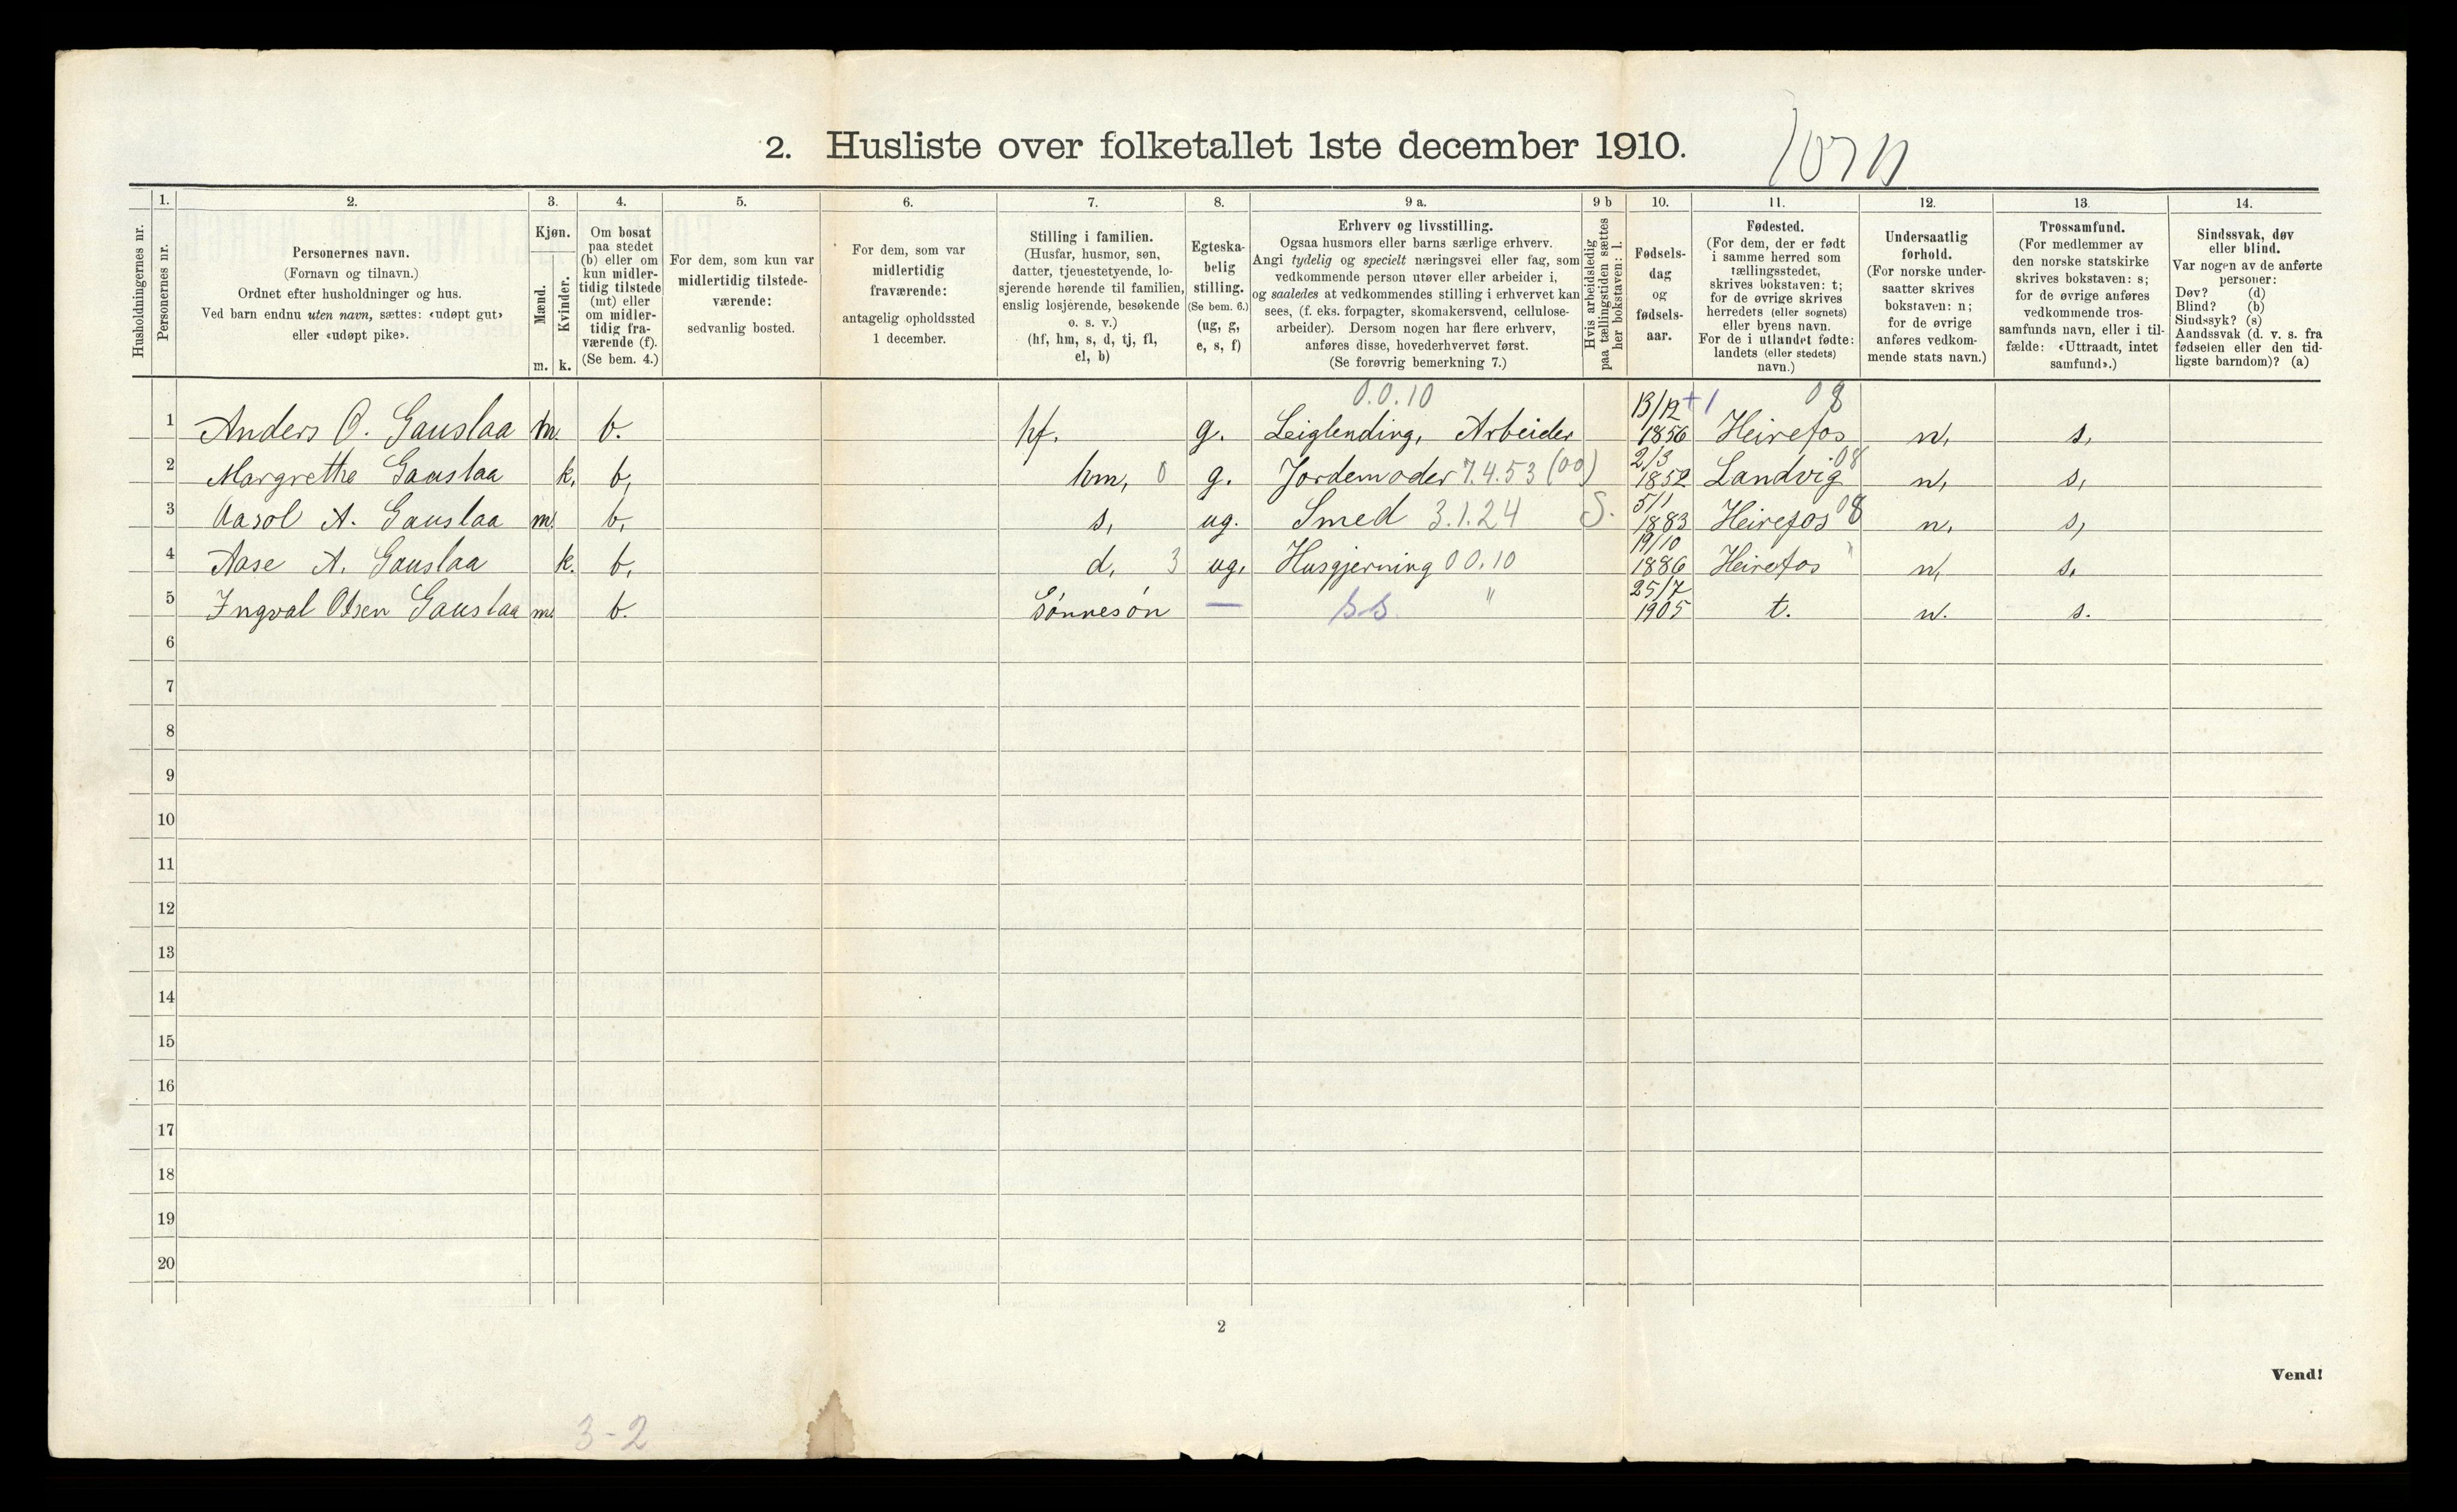 2. Husliste over folketallet 1ste december 1910.
Husholdningernes nr.
1.
Personernes nr.
2.
Personernes navn.
(Fornavn og tilnavn.)
Ordnet efter husholdninger og hus.
Ved barn endnu uten navn, sættes: «udøpt gut»
eller «udøpt pike».
3.
Kjøn.
Mænd.
Kvinder.
m. k.
4.
Om bosat
paa stedet
(b) eller om
kun midler-
tidig tilstede
(mt) eller
om midler-
tidig fra-
værende (f).
(Se bem. 4.)
5.
For dem, som kun var
midlertidig tilstede-
værende:
sedvanlig bosted.
6.
For dem, som var
midlertidig
fraværende:
antagelig opholdssted
1 december.
7.
Stilling i familien.
(Husfar, husmor, søn,
datter, tjenestetyende, lo-
sjerende hørende til familien,
enslig losjerende, besøkende
o. s. v.)
(hf, hm, s, d, tj, fl,
el, b)
8.
Egteska-
belig
stilling.
(Se bem. 6.)
(ug, g,
e, s, f)
9 a.
Erhverv og livsstilling.
Ogsaa husmors eller barns særlige erhverv.
Angi tydelig og specielt næringsvei eller fag, som
vedkommende person utøver eller arbeider i,
og saaledes at vedkommendes stilling i erhvervet kan
sees, (f. eks. forpagter, skomakersvend, cellulose-
arbeider). Dersom nogen har flere erhverv,
anføres disse, hovederhvervet først.
(Se forøvrig bemerkning 7.)
9 b
Hvis arbeidsledig
paa tællingstiden sættes
her bokstaven: l.
10.
Fødsels-
dag
og
fødsels-
aar.
11.
Fødested.
(For dem, der er født
i samme herred som
tællingsstedet,
skrives bokstaven: t;
for de øvrige skrives
herredets (eller sognets)
eller byens navn.
For de i utlandet fødte:
landets (eller stedets)
navn.)
12.
Undersaatlig
forhold.
(For norske under-
saatter skrives
bokstaven: n;
for de øvrige
anføres vedkom-
mende stats navn.)
13.
Trossamfund.
(For medlemmer av
den norske statskirke
skrives bokstaven: s;
for de øvrige anføres
vedkommende tros-
samfunds navn, eller i til-
fælde: «Uttraadt, intet
samfund».)
14.
Sindssvak, døv
eller blind.
Var nogen av de anførte
personer:
Døv? (d)
Blind? (b)
Sindssyk? (s)
Aandssvak (d. v. s. fra
fødselen eller den tid-
ligste barndom)? (a)
0.0.10 13/12 +1 08
1 Anders O. Gauslaa m. b. hf. g. Leiglending, Arbeider 1856 Heirefos n, s,
2/3 08
2 Margrethe Gauslaa k, b, hm, 0 g. Jordemoder 7.4.53 (00) 1852 Landvig n, s,
5/1 08
3 Aasol A. Gauslaa m. b, s, ug. Smed 3.1.24 S. 1883 Heirefos n, s,
19/10 "
4 Aase A. Gauslaa k. b, d, 3 ug, Husgjerning 00.10 1886 Heirefos n, s,
25/7
5 Ingval Olsen Gauslaa m. b. Sønnesøn — ss " 1905 t. n. s.
6
7
8
9
10
11
12
13
14
15
16
17
18
19
20
2
Vend!
3-2